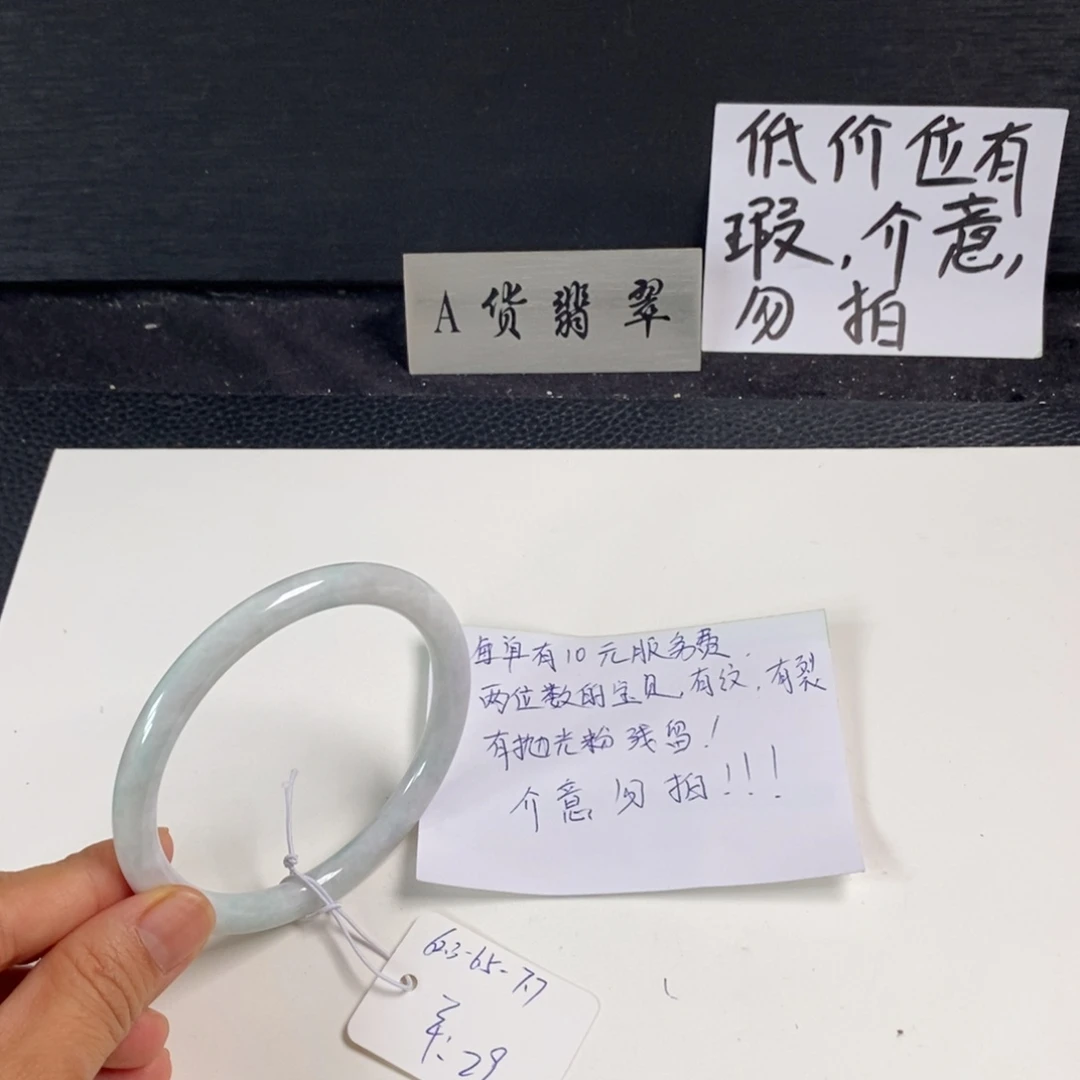 低价位有
瑕,介意,
勿拍
A货翡翠
每单有10元服务费.
两位数的宝贝,有纹,有裂
有抛光粉残留!
介意勿拍!!!
60.3-6.5-7.7
¥:29